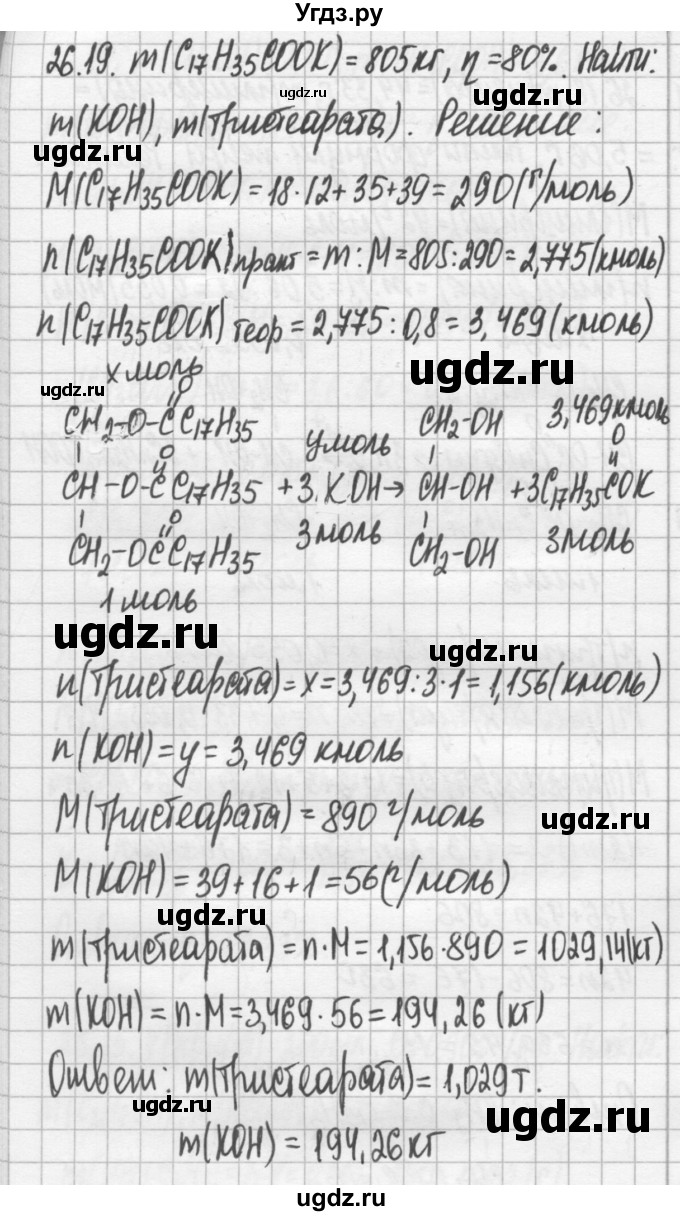 Угдз.ру
26.19. m(C17H35COOK) = 805кг, η = 80%. Найти:
ugdz.ru
m(KOH), m(тристеарата). Решение:
ugdz.ru ugdz.ru
M(C17H35COOK) = 18·12+35+39 = 290(г/моль)
n(C17H35COOK)практ = m : M = 805:290 = 2,775(кмоль)
n(C17H35COOK)теор = 2,775 : 0,8 = 3,469(кмоль)
ugdz.ru
x моль
ugdz.ru
O
CH2-O-C C17H35 y моль CH2-OH 3,469кмоль
O O
CH-O-C C17H35 + 3KOH → CH-OH + 3C17H35COK
O
CH2-OC C17H35 3 моль CH2-OH 3моль
ugdz.ru
1 моль
ugdz.ru
ugdz.ru
n(тристеарата) = x = 3,469:3·1 = 1,156(кмоль)
ugdz.ru
n(KOH) = y = 3,469 кмоль
M(тристеарата) = 890 г/моль
ugdz.ru
M(KOH) = 39+16+1 = 56(г/моль)
ugdz.ru
m(тристеарата) = n·M = 1,156·890 = 1029,14(кг)
m(KOH) = n·M = 3,469·56 = 194,26(кг)
ugdz.ru
Ответ: m(тристеарата) = 1,029т.
ugdz.ru
m(KOH) = 194,26кг
ugdz.ru
ugdz.ru